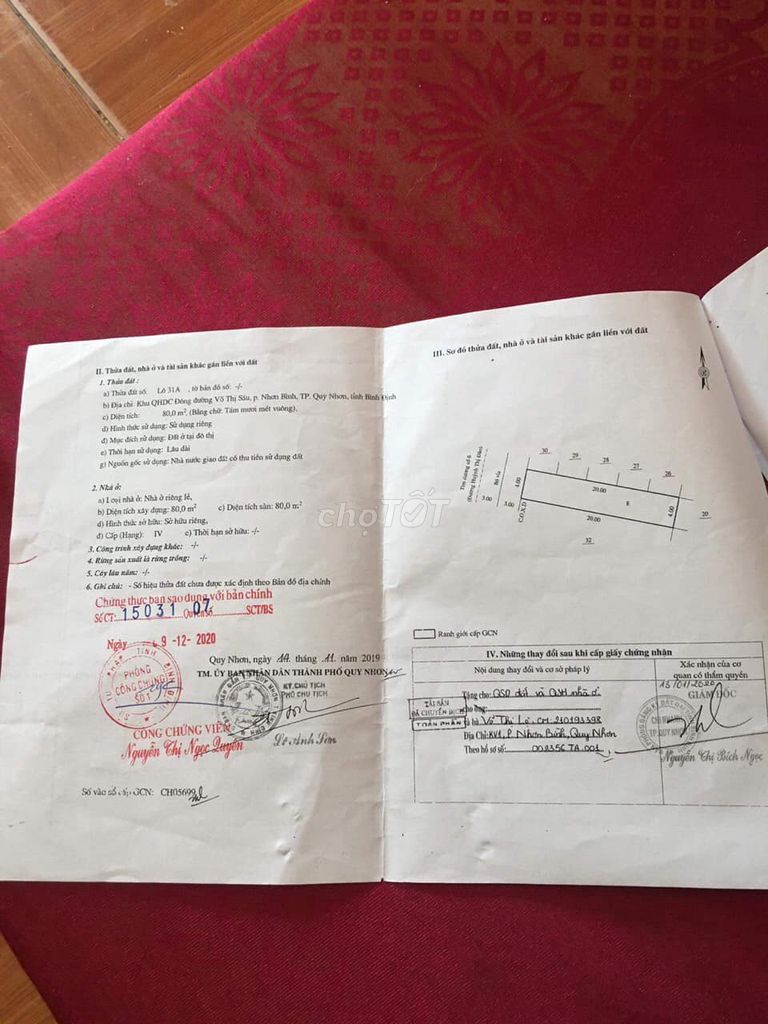 II. Thửa đất, nhà ở và tài sản khác gắn liền với đất
1. Thửa đất :
a) Thửa đất số: Lô 31A , tờ bản đồ số: -/-
b) Địa chỉ: Khu QHDC Đông đường Võ Thị Sáu, p. Nhơn Bình, TP. Quy Nhơn, tỉnh Bình Định
c) Diện tích: 80,0 m², (Bằng chữ: Tám mươi mét vuông),
d) Hình thức sử dụng: Sử dụng riêng
đ) Mục đích sử dụng: Đất ở tại đô thị
e) Thời hạn sử dụng: Lâu dài
g) Nguồn gốc sử dụng: Nhà nước giao đất có thu tiền sử dụng đất
2. Nhà ở:
a) Loại nhà ở: Nhà ở riêng lẻ,
b) Diện tích xây dựng: 80,0 m² c) Diện tích sàn: 80,0 m²
d) Hình thức sở hữu: Sở hữu riêng,
đ) Cấp (Hạng): IV e) Thời hạn sở hữu: -/-
3. Công trình xây dựng khác: -/-
4. Rừng sản xuất là rừng trồng: -/-
5. Cây lâu năm: -/-
6. Ghi chú: - Số hiệu thửa đất chưa được xác định theo Bản đồ địa chính
Chứng thực bản sao đúng với bản chính
Số CT: 15031 Quyển số 07 SCT/BS
Ngày 9-12-2020
Quy Nhơn, ngày 14 tháng 11 năm 2019
TM. ỦY BAN NHÂN DÂN THÀNH PHỐ QUY NHƠN
KT.CHỦ TỊCH
PHÓ CHỦ TỊCH
PHÒNG
CÔNG CHỨNG
SỐ 1
CÔNG CHỨNG VIÊN
Nguyễn Thị Ngọc Quyên
Số vào sổ cấp GCN: CH05699
III. Sơ đồ thửa đất, nhà ở và tài sản khác gắn liền với đất
Tim đường số 6
(Đường Huỳnh Thị Đào)
Bó vỉa
3.00
3.00
4.00
C.O.X.D
30
29
28
27
26
20.00
20.00
4.00
20
32
Ranh giới cấp GCN
IV. Những thay đổi sau khi cấp giấy chứng nhận
Nội dung thay đổi và cơ sở pháp lý
Xác nhận của cơ quan có thẩm quyền
Tặng cho: QSD đất và QSH nhà ở
TÀI SẢN
ĐÃ CHUYỂN DỊCH
TOÀN PHẦN
cho bà Võ Thị Lợi, CM: 210193598
Địa Chỉ: KV1, P. Nhơn Bình, Quy Nhơn
Theo hồ sơ số: 002356.TA.001
13/01/2020
GIÁM ĐỐC
CHI NHÁNH
TP.QUY NHƠN
Nguyễn Thị Bích Ngọc
chợTỐT